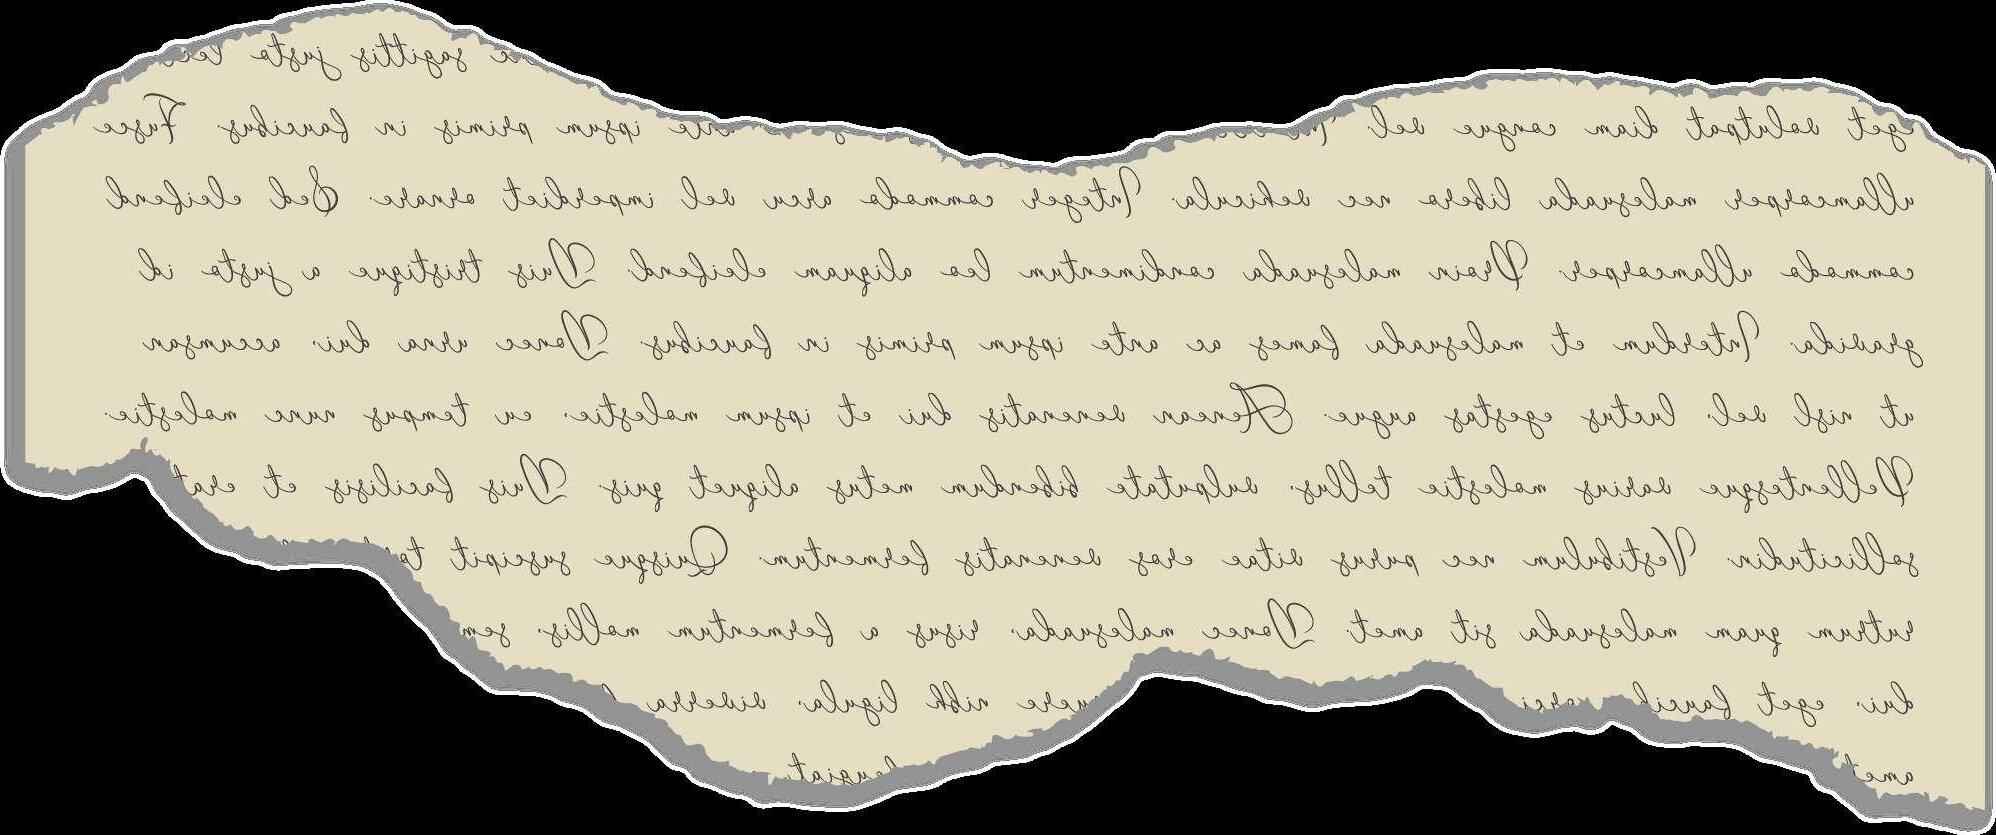 sagittis justo
eget volutpat diam congue vel. ante ipsum primis in faucibus. Fusce
ullamcorper malesuada libero nec vehicula. Integer commodo arcu vel imperdiet ornare. Sed eleifend
commodo ullamcorper. Proin malesuada condimentum leo aliquam eleifend. Duis tristique a justo id
gravida. Interdum et malesuada fames ac ante ipsum primis in faucibus. Donec urna dui, accumsan
ut nisl vel, luctus egestas augue. Aenean venenatis dui et ipsum molestie, eu tempus nunc molestie.
Pellentesque varius molestie tellus, vulputate bibendum metus aliquet quis. Duis facilisis et erat
sollicitudin. Vestibulum nec purus vitae eros venenatis fermentum. Quisque suscipit
rutrum quam malesuada sit amet. Donec malesuada, risus a fermentum mollis, sem
dui, eget nibh ligula, viverra
amet feugiat